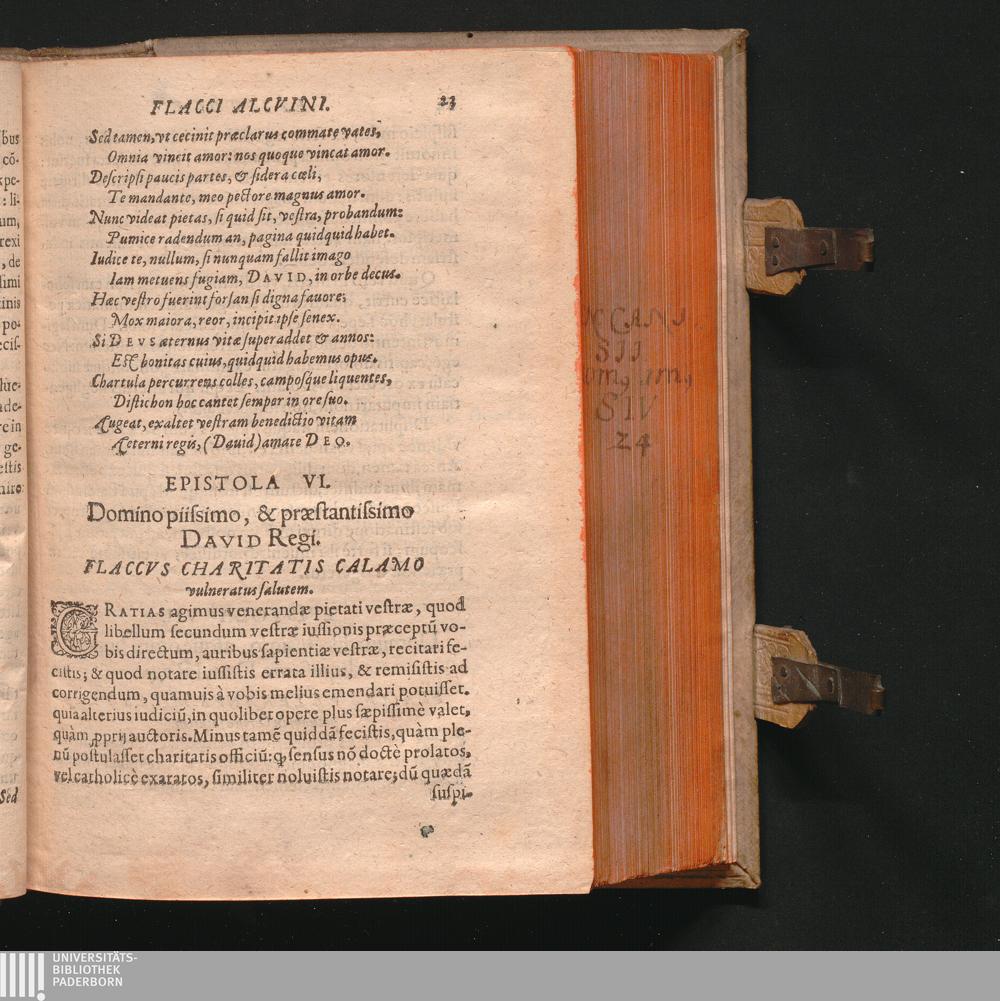 FLACCI ALCVINI. 23
Sed tamen, vt cecinit præclarus commate vates,
Omnia vincit amor: nos quoque vincat amor.
Descripsi paucis partes, & sidera cœli,
Te mandante, meo pectore magnus amor.
Nunc videat pietas, si quid sit, vestra, probandum:
Pumice radendum an, pagina quidquid habet.
Iudice te, nullum, si nunquam fallit imago
Iam metuens fugiam, DAVID, in orbe decus.
Hæc vestro fuerint forsan si digna fauore;
Mox maiora, reor, incipit ipse senex.
Si DEVS æternus vitæ superaddet & annos:
Est bonitas cuius, quidquid habemus opus.
Chartula percurrens colles, camposq́ue liquentes,
Distichon hoc cantet semper in ore suo.
Augeat, exaltet vestram benedictio vitam
Æterni regis, (Dauid) amate DEO.
EPISTOLA VI.
Domino piissimo, & præstantissimo
DAVID Regi.
FLACCVS CHARITATIS CALAMO
vulneratus salutem.
GRATIAS agimus venerandæ pietati vestræ, quod
libellum secundum vestræ iussionis præceptū vo-
bis directum, auribus sapientiæ vestræ, recitari fe-
cistis; & quod notare iussistis errata illius, & remisistis ad
corrigendum, quamuis à vobis melius emendari potuisset.
quia alterius iudiciū, in quolibet opere plus sæpissimè valet,
quàm ꝓprij auctoris. Minus tamē quiddā fecistis, quàm ple-
nū postulasset charitatis officiū: ꝙ sensus nō doctè prolatos,
vel catholicè exaratos, similiter noluistis notare; dū quædā
suspi-
bus
cō-
xpe-
: li-
um,
rexi
, de
simi
tinis
po-
ecis-
ade-
re in
ge-
estis
niro
Sed
SIV
24
UNIVERSITÄTS-
BIBLIOTHEK
PADERBORN